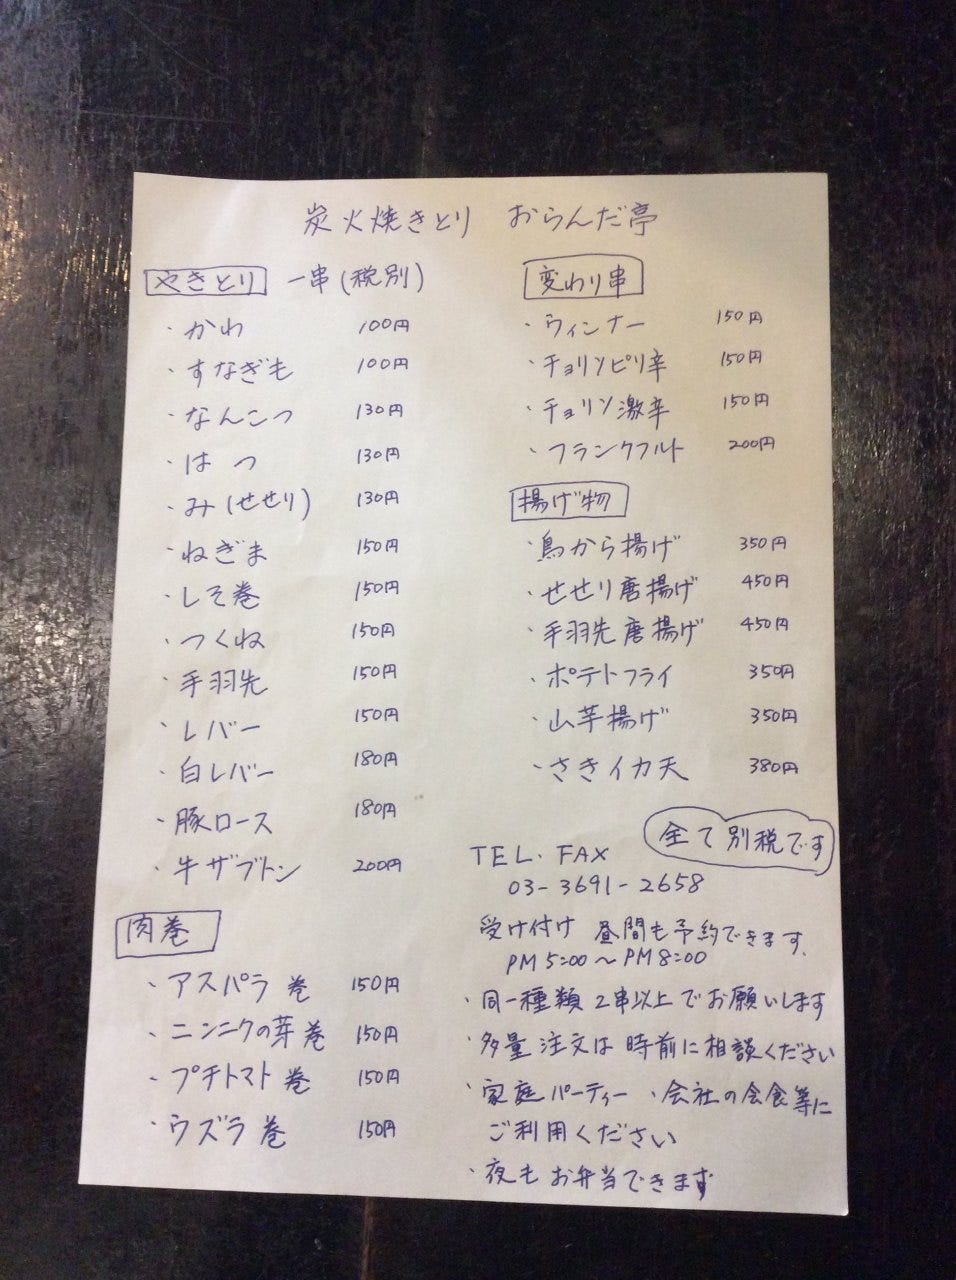 炭火焼きとり おらんだ亭
やきとり 一串(税別)
・かわ 100円
・すなぎも 100円
・なんこつ 130円
・はつ 130円
・み(せせり) 130円
・ねぎま 150円
・しそ巻 150円
・つくね 150円
・手羽先 150円
・レバー 150円
・白レバー 180円
・豚ロース 180円
・牛ザブトン 200円
肉巻
・アスパラ巻 150円
・ニンニクの芽巻 150円
・プチトマト巻 150円
・ウズラ巻 150円
変わり串
・ウィンナー 150円
・チョリソピリ辛 150円
・チョリソ激辛 150円
・フランクフルト 200円
揚げ物
・鳥から揚げ 350円
・せせり唐揚げ 450円
・手羽先唐揚げ 450円
・ポテトフライ 350円
・山芋揚げ 350円
・さきイカ天 380円
全て別税です
TEL・FAX
03-3691-2658
受け付け 昼間も予約できます。
PM5:00〜PM8:00
・同一種類2串以上でお願いします
・多量注文は時前に相談ください
・家庭パーティー、会社の会食等に
ご利用ください
・夜もお弁当できます